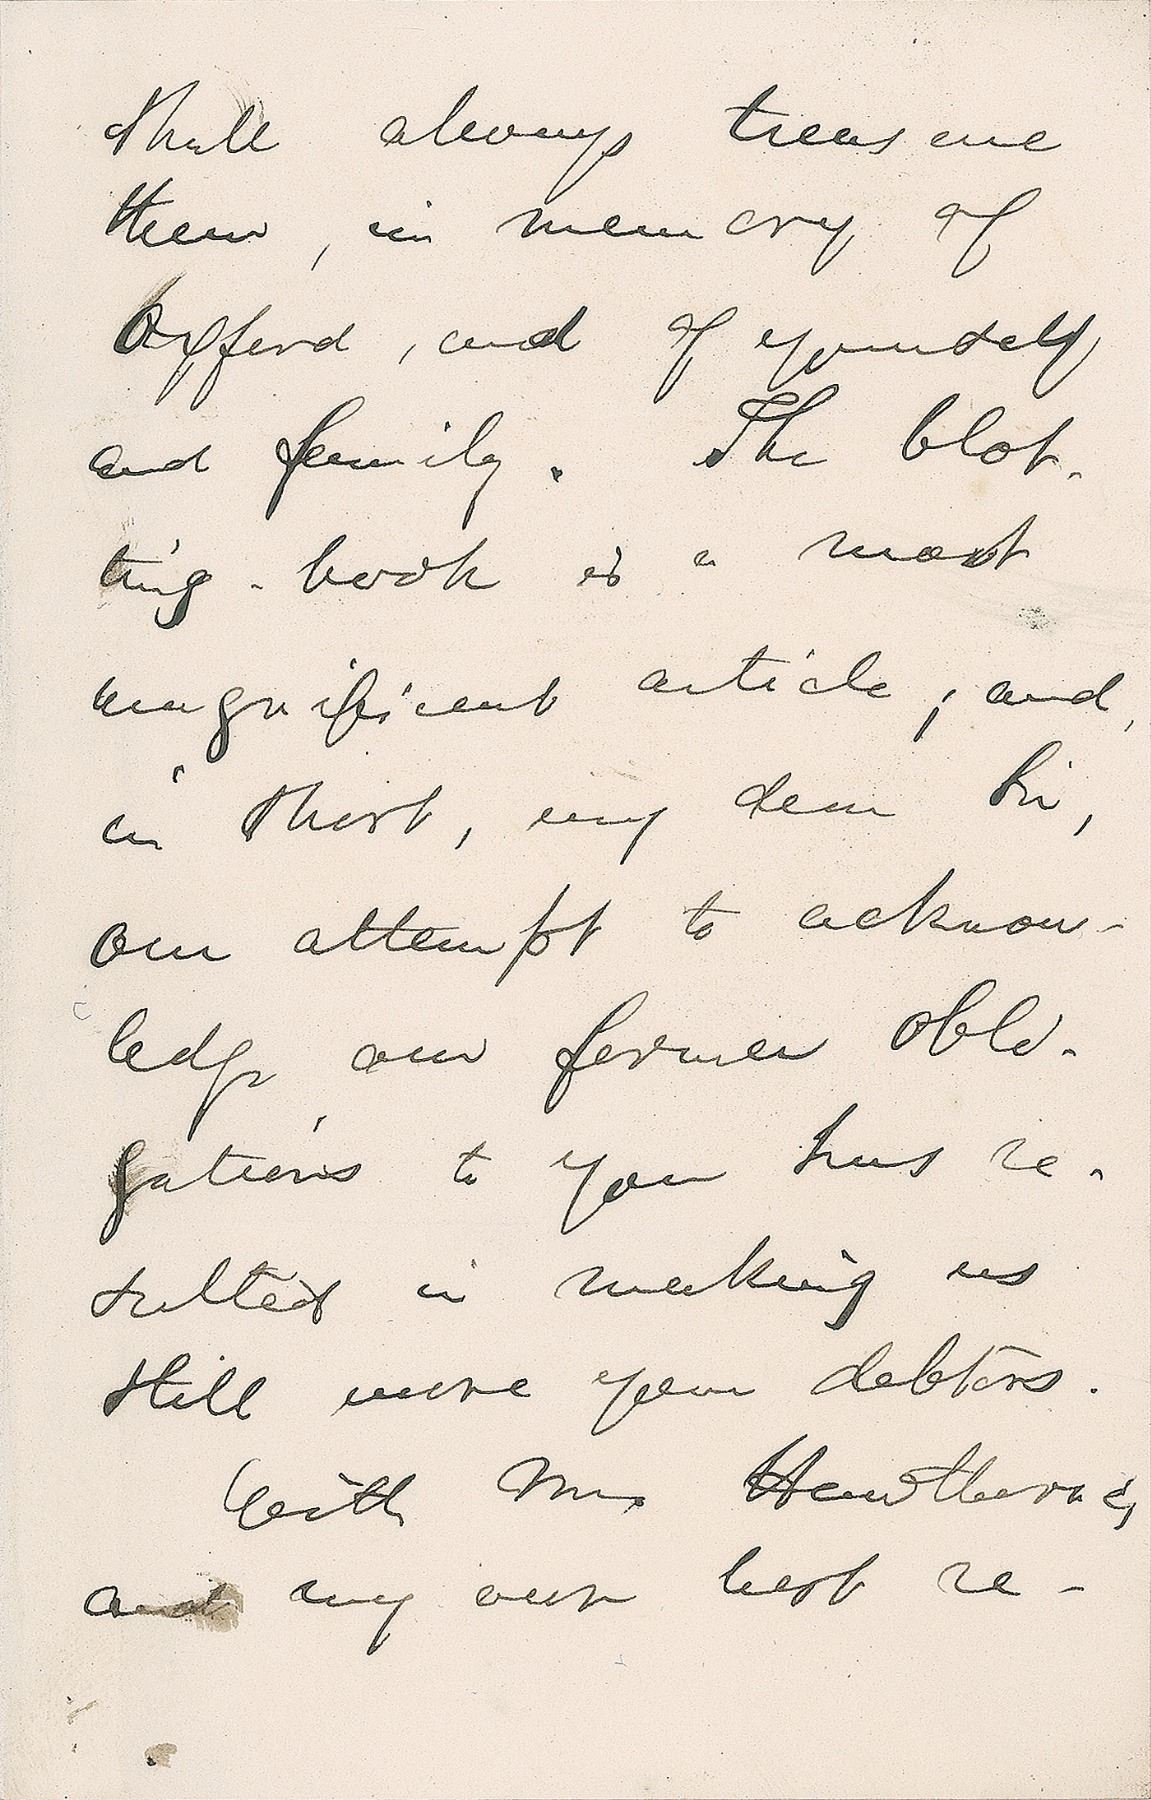 shall always treasure
them, in memory of
Oxford, and of yourself
and family. The blot-
ting-book is a most
magnificent article; and,
in short, my dear Sir,
our attempt to acknow-
ledge our former obli-
gations to you has re-
sulted in making us
still more your debtors.
With Mrs Hawthorne's,
and my own best re-